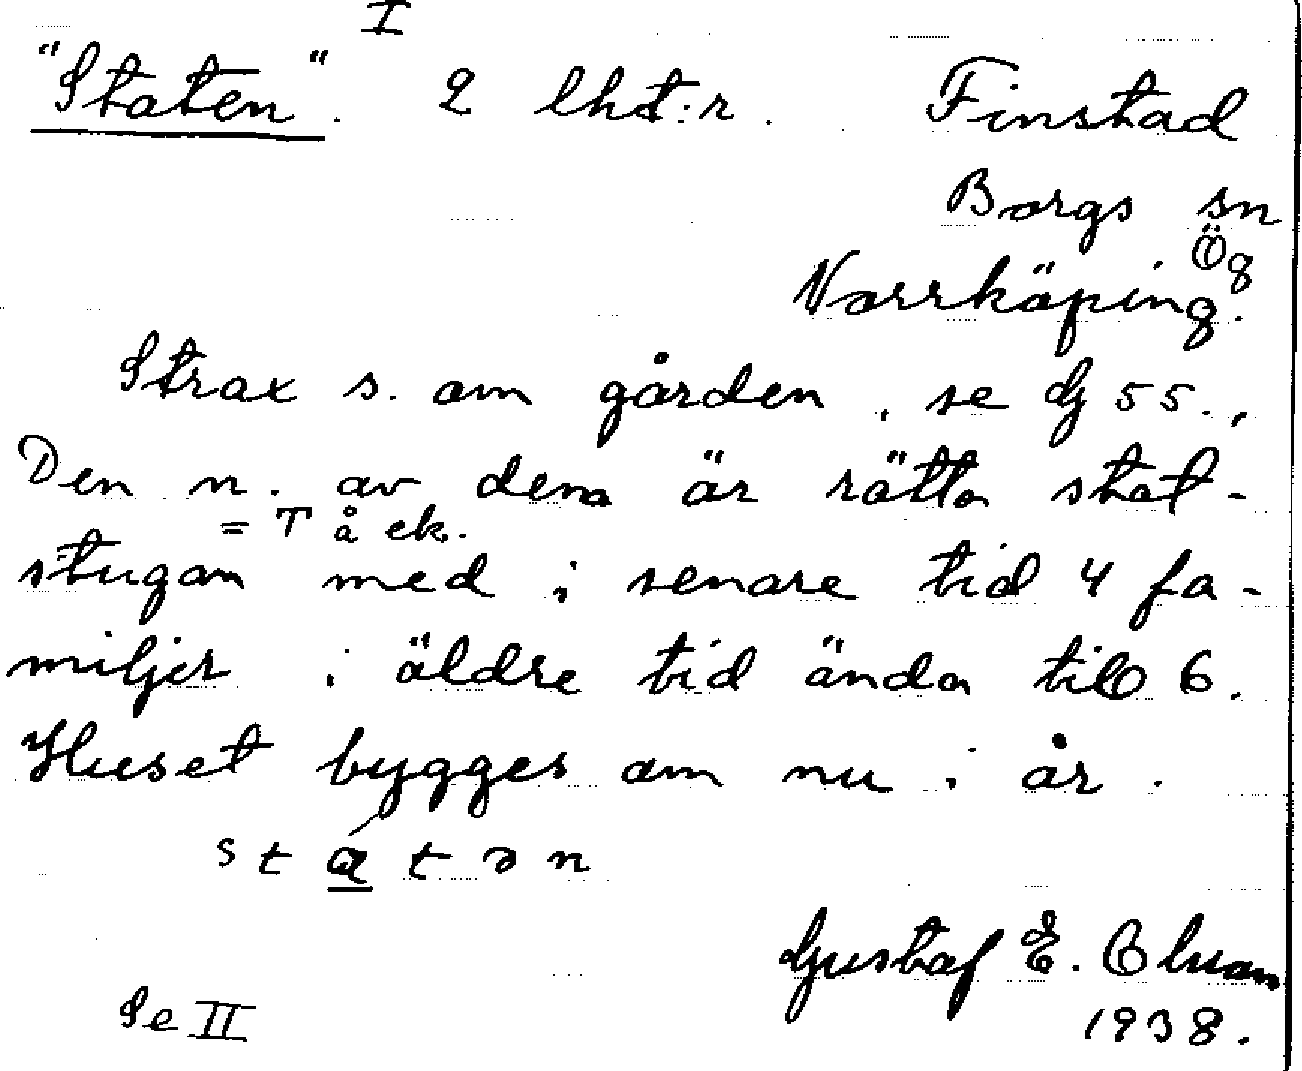 I
"Staten". 2 lht:r. Finstad
Borgs sn
Ög
Norrköping.
Strax s. om gården, se Dj 55.,
Den n. av dem är rätta stat-
= T å ck.
stugan med i senare tid 4 fa-
miljer i äldre tid ända till 6.
Huset bygges om nu i år.
s t ɑ́ t ə n
Gustaf E.
1938.
Se II